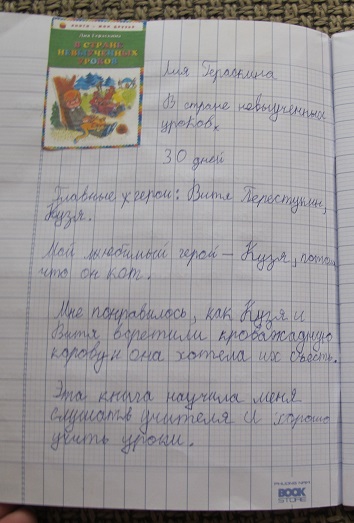 КНИГИ - МОИ ДРУЗЬЯ
Лия Гераскина
В СТРАНЕ
НЕВЫУЧЕННЫХ
УРОКОВ
Лия Гераскина
В стране невыученных
уроков.
30 дней
Главные герои: Витя Перестукин,
Кузя.
Мой любимый герой – Кузя, потому
что он кот.
Мне понравилось, как Кузя и
Витя встретили кроважадную
корову и она хотела их съесть.
Эта книга научила меня
слушать учителя и хорошо
учить уроки.
BOOK
STORE